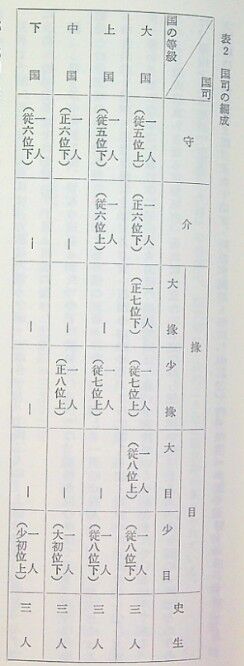 表2 国司の編成
国司
国の等級
守
介
掾
大掾
少掾
目
大目
少目
史生
大国
一人
(従五位上)
一人
(正六位下)
一人
(正七位下)
一人
(従七位上)
一人
(従八位上)
一人
(従八位下)
三人
上国
一人
(従五位下)
一人
(従六位上)
—
一人
(従七位上)
—
一人
(従八位下)
三人
中国
一人
(正六位下)
—
—
一人
(正八位上)
—
一人
(大初位下)
三人
下国
一人
(従六位下)
—
—
—
—
一人
(少初位上)
三人